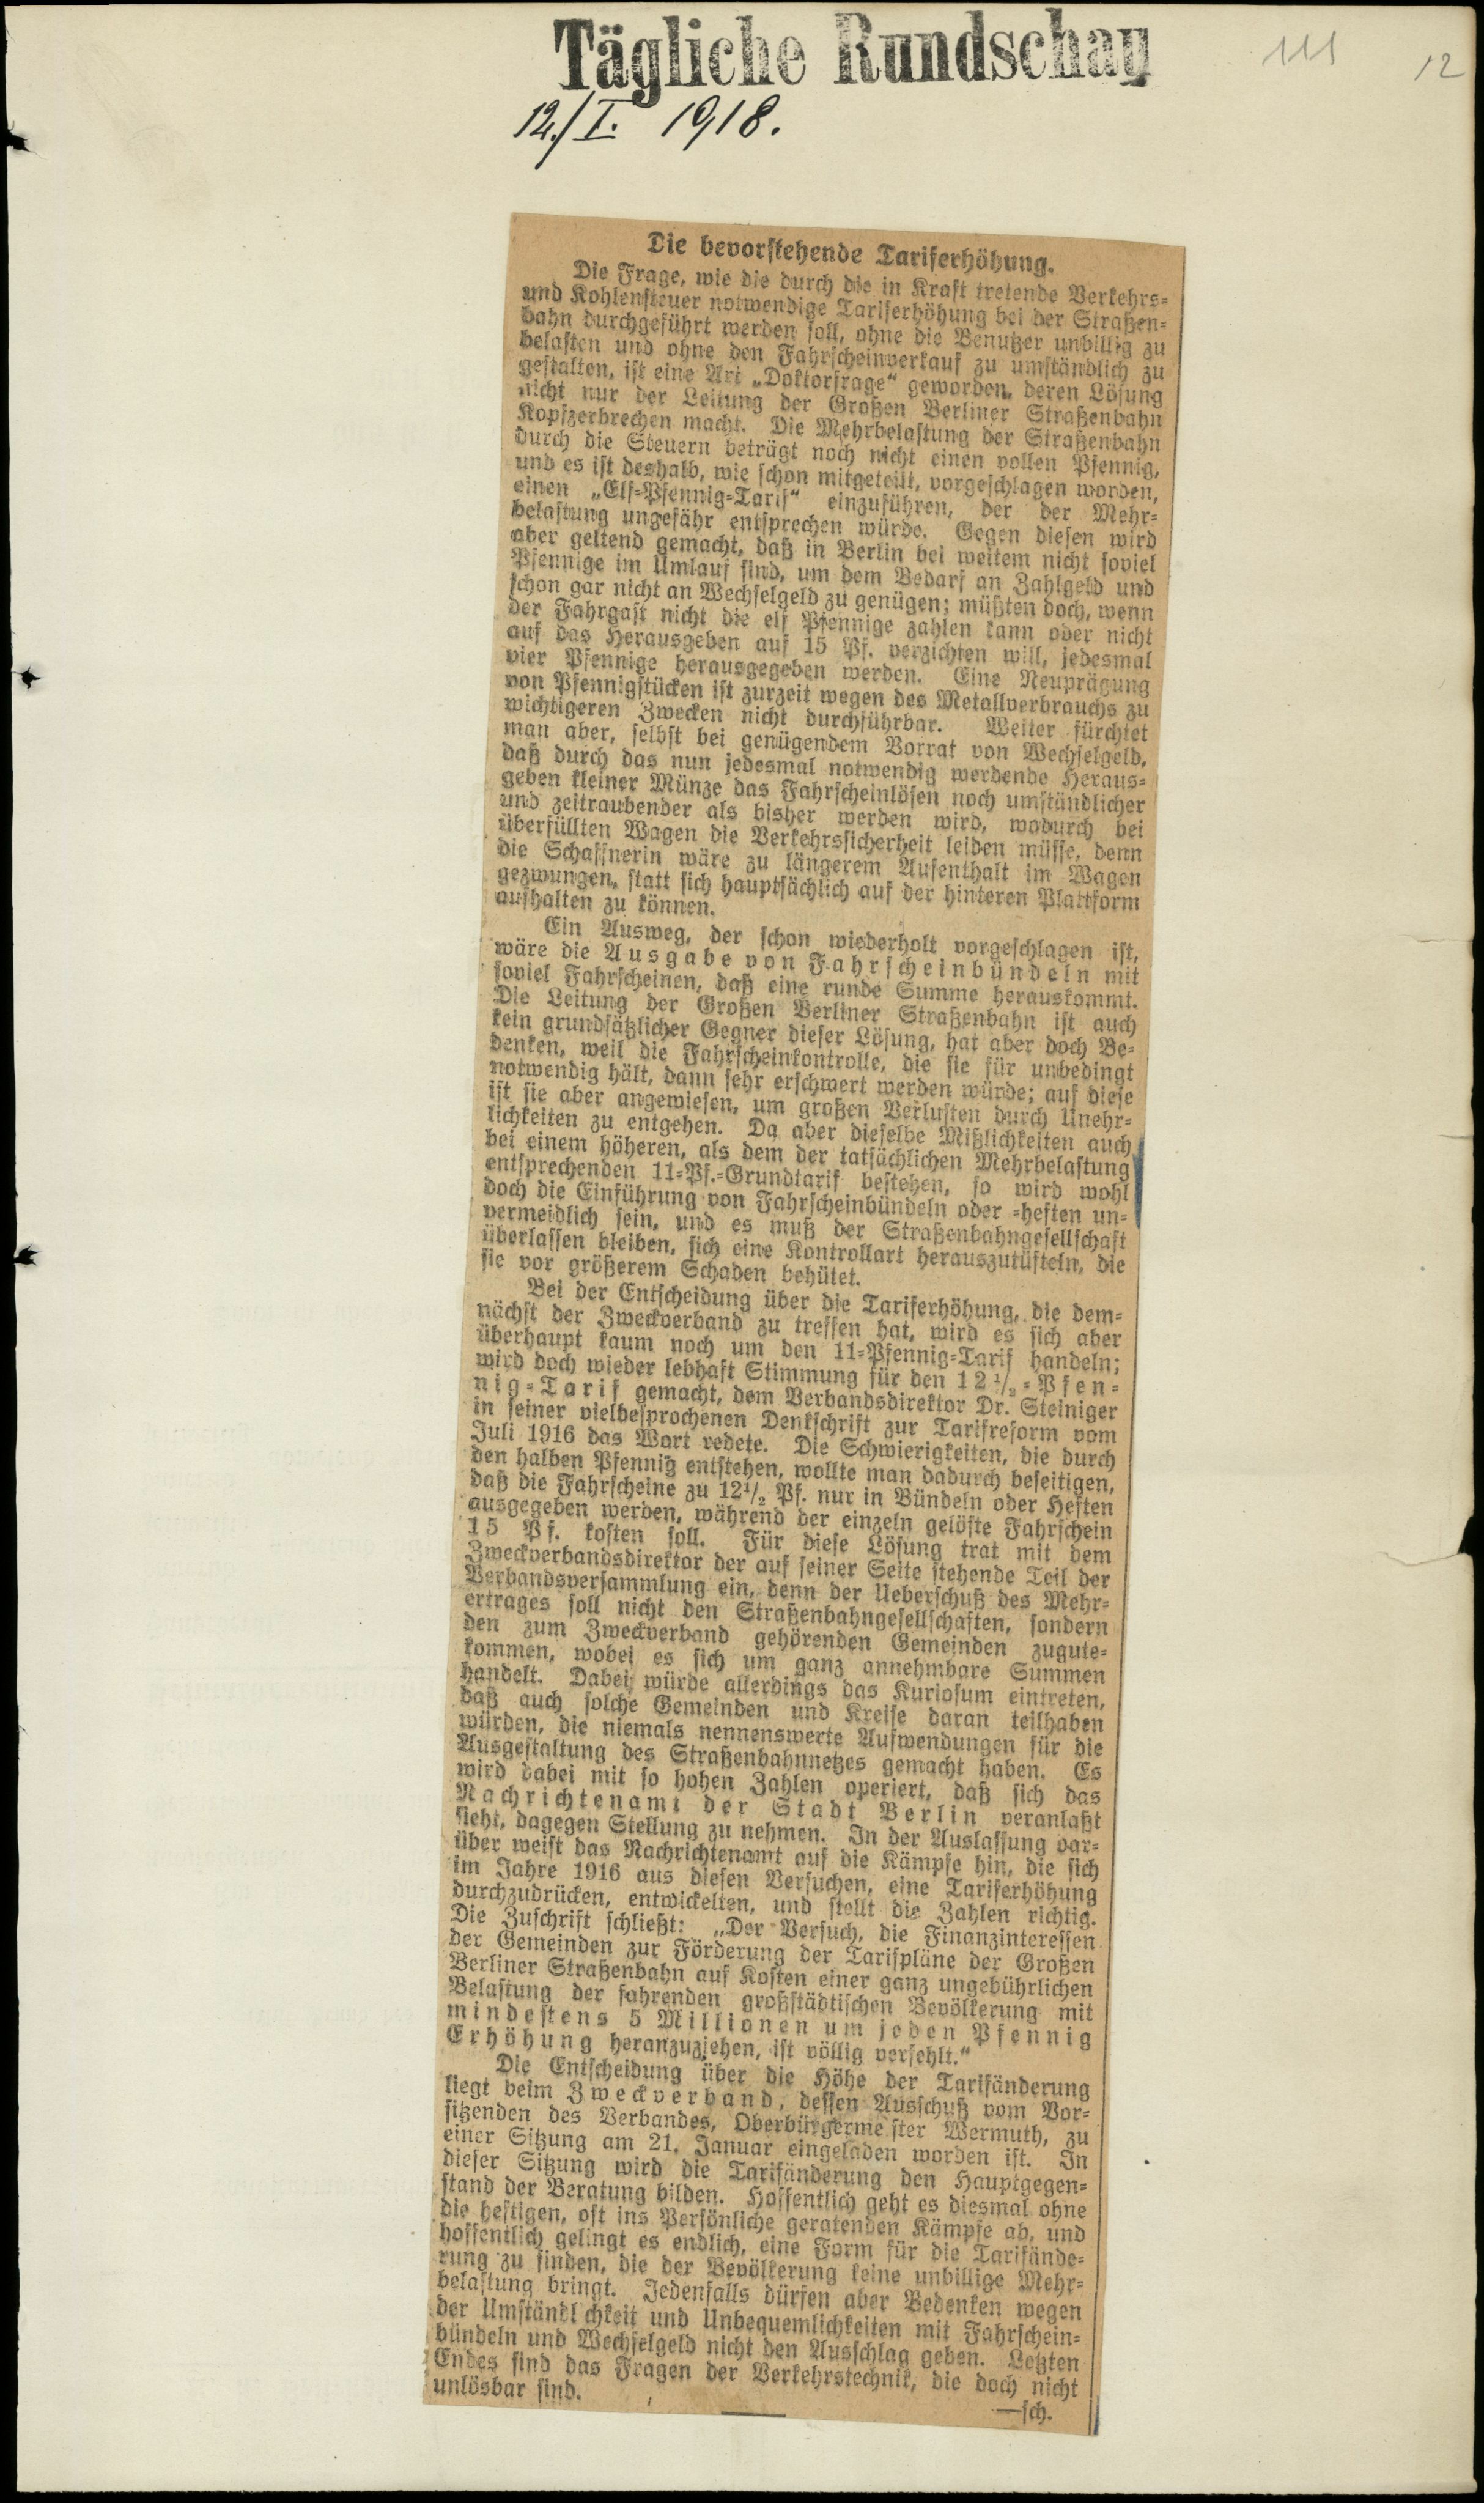 Tägliche Rundschau
111
12
12./I. 1918.
Die bevorstehende Tariferhöhung.
Die Frage, wie die durch die in Kraft tretende Verkehrs-
und Kohlensteuer notwendige Tariferhöhung bei der Straßen-
bahn durchgeführt werden soll, ohne die Benutzer unbillig zu
belasten und ohne den Fahrscheinverkauf zu umständlich zu
gestalten, ist eine Art „Doktorfrage“ geworden, deren Lösung
nicht nur der Leitung der Großen Berliner Straßenbahn
Kopfzerbrechen macht. Die Mehrbelastung der Straßenbahn
durch die Steuern beträgt noch nicht einen vollen Pfennig,
und es ist deshalb, wie schon mitgeteilt, vorgeschlagen worden,
einen „Elf-Pfennig-Tarif“ einzuführen, der der Mehr-
belastung ungefähr entsprechen würde. Gegen diesen wird
aber geltend gemacht, daß in Berlin bei weitem nicht soviel
Pfennige im Umlauf sind, um dem Bedarf an Zahlgeld und
schon gar nicht an Wechselgeld zu genügen; müßten doch, wenn
der Fahrgast nicht die elf Pfennige zahlen kann oder nicht
auf das Herausgeben auf 15 Pf. verzichten will, jedesmal
vier Pfennige herausgegeben werden. Eine Neuprägung
von Pfennigstücken ist zurzeit wegen des Metallverbrauchs zu
wichtigeren Zwecken nicht durchführbar. Weiter fürchtet
man aber, selbst bei genügendem Vorrat von Wechselgeld,
daß durch das nun jedesmal notwendig werdende Heraus-
geben kleiner Münze das Fahrscheinlösen noch umständlicher
und zeitraubender als bisher werden wird, wodurch bei
überfüllten Wagen die Verkehrssicherheit leiden müsse, denn
die Schaffnerin wäre zu längerem Aufenthalt im Wagen
gezwungen, statt sich hauptsächlich auf der hinteren Plattform
aufhalten zu können.
Ein Ausweg, der schon wiederholt vorgeschlagen ist,
wäre die Ausgabe von Fahrscheinbündeln mit
soviel Fahrscheinen, daß eine runde Summe herauskommt.
Die Leitung der Großen Berliner Straßenbahn ist auch
kein grundsätzlicher Gegner dieser Lösung, hat aber doch Be-
denken, weil die Fahrscheinkontrolle, die sie für unbedingt
notwendig hält, dann sehr erschwert werden würde; auf diese
ist sie aber angewiesen, um großen Verlusten durch Unehr-
lichkeiten zu entgehen. Da aber dieselbe Mißlichkeiten auch
bei einem höheren, als dem der tatsächlichen Mehrbelastung
entsprechenden 11-Pf.-Grundtarif bestehen, so wird wohl
doch die Einführung von Fahrscheinbündeln oder -heften un-
vermeidlich sein, und es muß der Straßenbahngesellschaft
überlassen bleiben, sich eine Kontrollart herauszutüfteln, die
sie vor größerem Schaden behütet.
Bei der Entscheidung über die Tariferhöhung, die dem-
nächst der Zweckverband zu treffen hat, wird es sich aber
überhaupt kaum noch um den 11-Pfennig-Tarif handeln;
wird doch wieder lebhaft Stimmung für den 12½-Pfen-
nig-Tarif gemacht, dem Verbandsdirektor Dr. Steiniger
in seiner vielbesprochenen Denkschrift zur Tarifreform vom
Juli 1916 das Wort redete. Die Schwierigkeiten, die durch
den halben Pfennig entstehen, wollte man dadurch beseitigen,
daß die Fahrscheine zu 12½ Pf. nur in Bündeln oder Heften
ausgegeben werden, während der einzeln gelöste Fahrschein
15 Pf. kosten soll. Für diese Lösung trat mit dem
Zweckverbandsdirektor der auf seiner Seite stehende Teil der
Verbandsversammlung ein, denn der Ueberschuß des Mehr-
ertrages soll nicht den Straßenbahngesellschaften, sondern
den zum Zweckverband gehörenden Gemeinden zugute-
kommen, wobei es sich um ganz annehmbare Summen
handelt. Dabei würde allerdings das Kuriosum eintreten,
daß auch solche Gemeinden und Kreise daran teilhaben
würden, die niemals nennenswerte Aufwendungen für die
Ausgestaltung des Straßenbahnnetzes gemacht haben. Es
wird dabei mit so hohen Zahlen operiert, daß sich das
Nachrichtenamt der Stadt Berlin veranlaßt
sieht, dagegen Stellung zu nehmen. In der Auslassung dar-
über weist das Nachrichtenamt auf die Kämpfe hin, die sich
im Jahre 1916 aus diesen Versuchen, eine Tariferhöhung
durchzudrücken, entwickelten, und stellt die Zahlen richtig.
Die Zuschrift schließt: „Der Versuch, die Finanzinteressen
der Gemeinden zur Förderung der Tarifpläne der Großen
Berliner Straßenbahn auf Kosten einer ganz ungebührlichen
Belastung der fahrenden großstädtischen Bevölkerung mit
mindestens 5 Millionen um jeden Pfennig
Erhöhung heranzuziehen, ist völlig verfehlt.“
Die Entscheidung über die Höhe der Tarifänderung
liegt beim Zweckverband, dessen Ausschuß vom Vor-
sitzenden des Verbandes, Oberbürgerme ster Wermuth, zu
einer Sitzung am 21. Januar eingeladen worden ist. In
dieser Sitzung wird die Tarifänderung den Hauptgegen-
stand der Beratung bilden. Hoffentlich geht es diesmal ohne
die heftigen, oft ins Persönliche geratenden Kämpfe ab, und
hoffentlich gelingt es endlich, eine Form für die Tarifände-
rung zu finden, die der Bevölkerung keine unbillige Mehr-
belastung bringt. Jedenfalls dürfen aber Bedenken wegen
der Umständl chkeit und Unbequemlichkeiten mit Fahrschein-
bündeln und Wechselgeld nicht den Ausschlag geben. Letzten
Endes sind das Fragen der Verkehrstechnik, die doch nicht
unlösbar sind.
—sch.